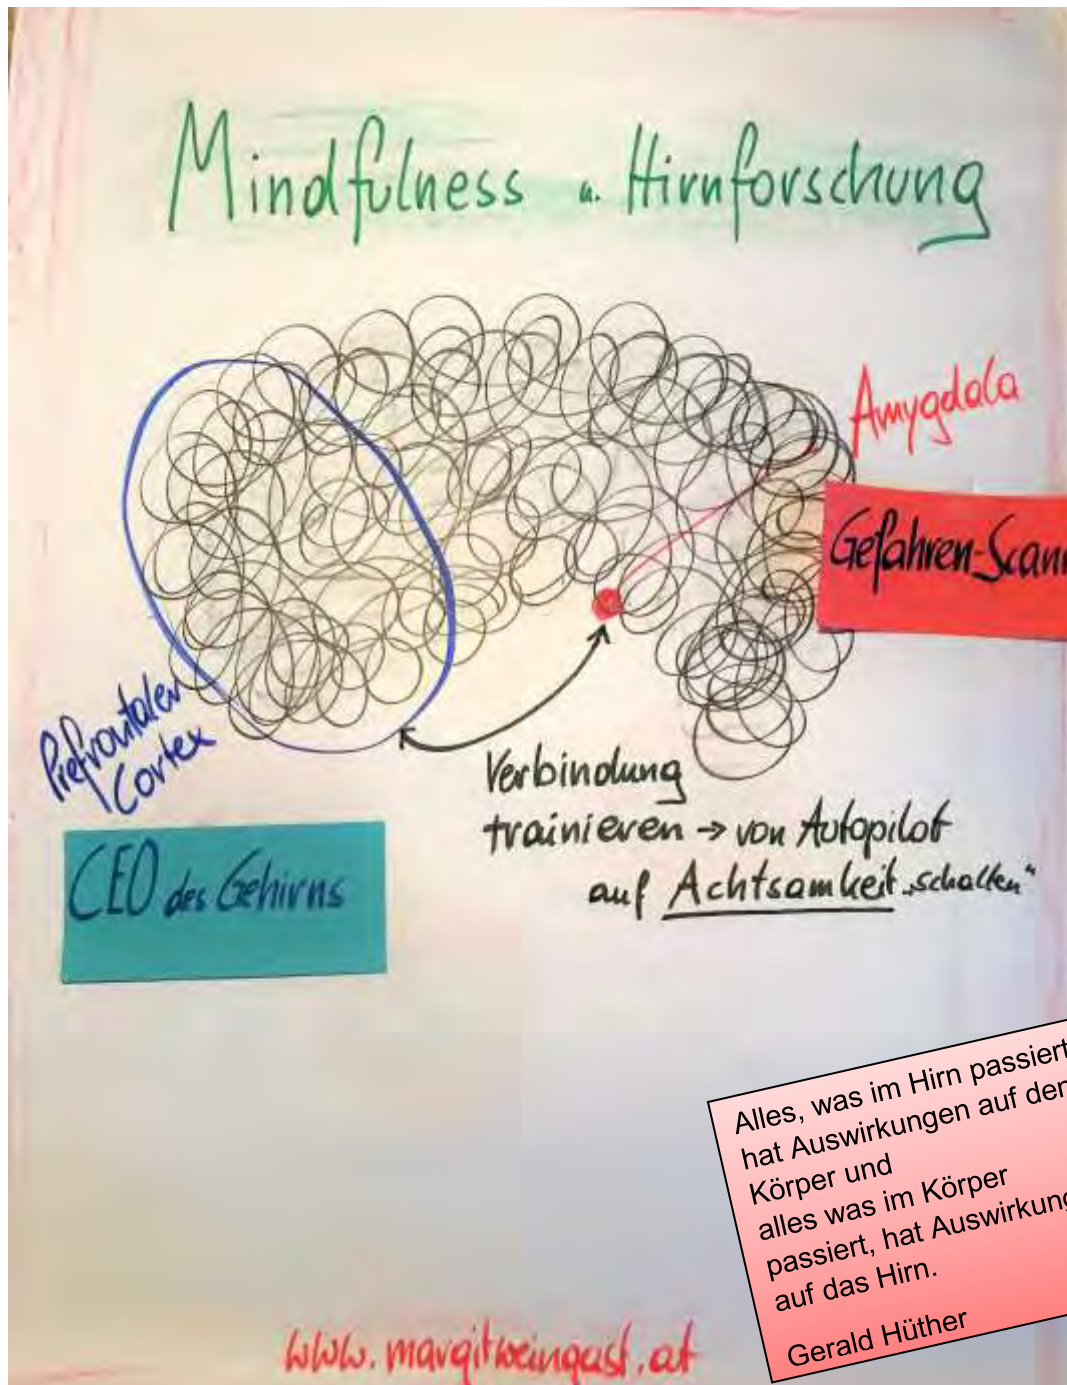 Mindfulness u. Hirnforschung
Amygdala
Gefahren-Scann
Präfrontaler
Cortex
CEO des Gehirns
Verbindung
trainieren → von Autopilot
auf Achtsamkeit „schalten“
Alles, was im Hirn passiert
hat Auswirkungen auf den
Körper und
alles was im Körper
passiert, hat Auswirkung
auf das Hirn.
Gerald Hüther
www.margitweingast.at